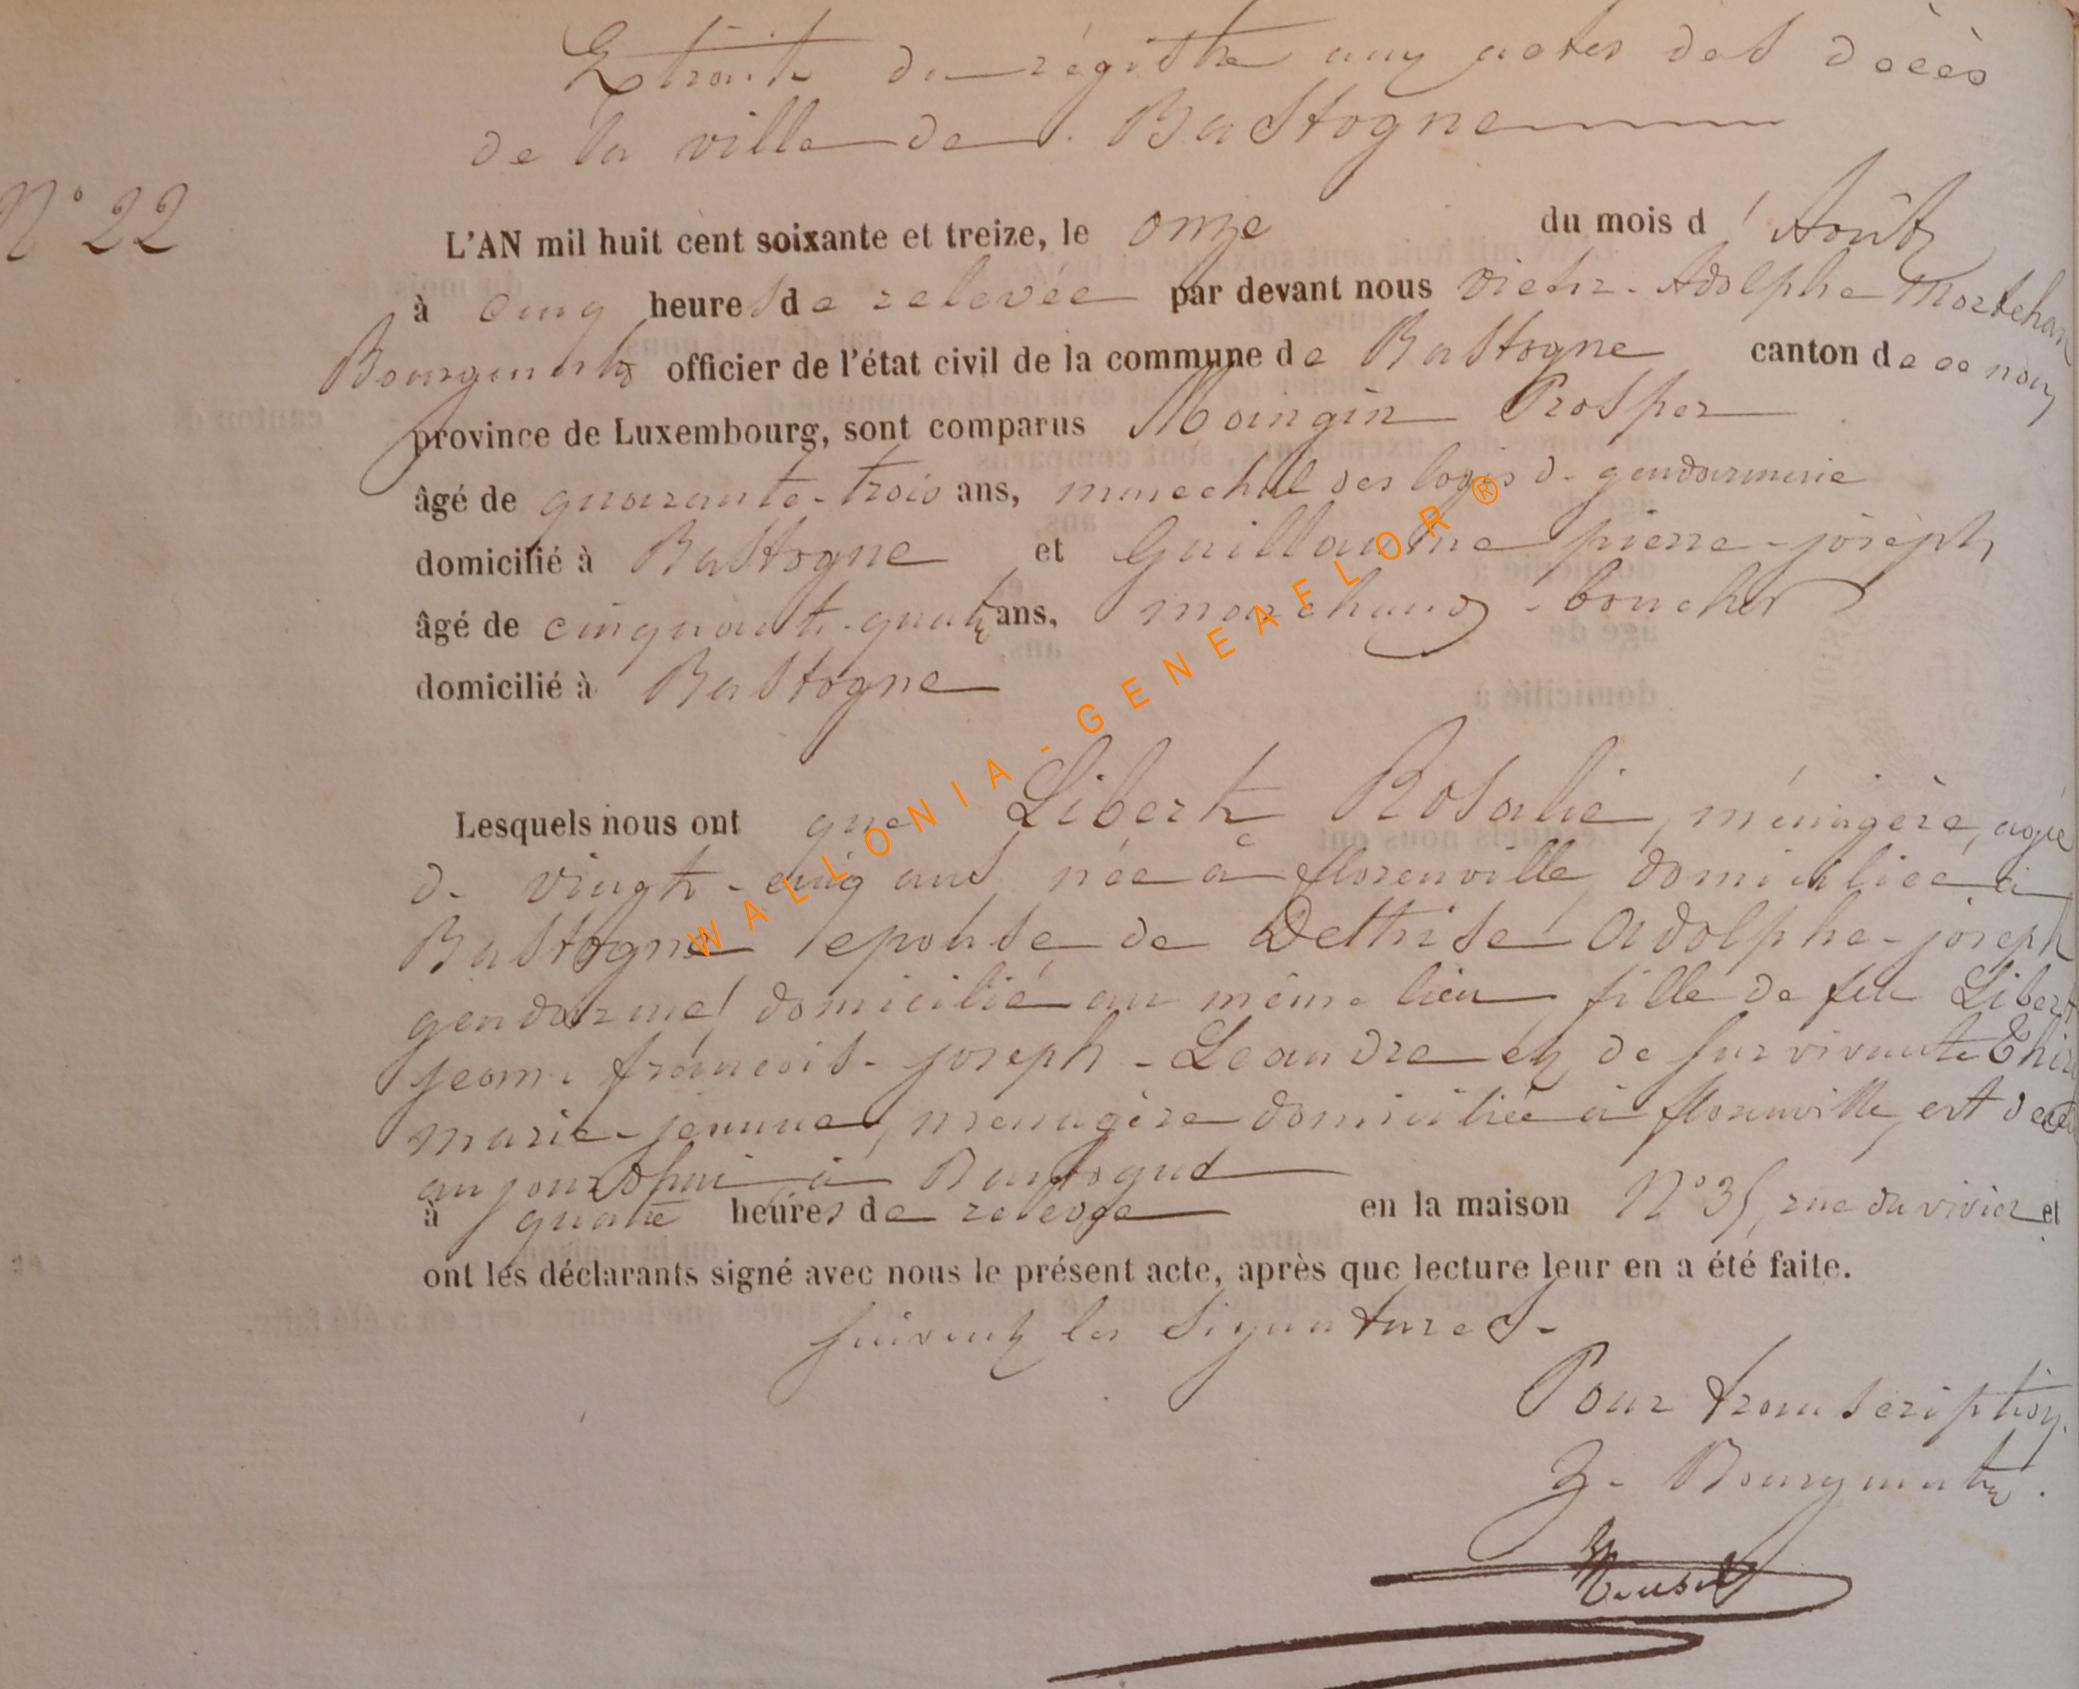 Extrait du régistre aux actes des décès
de la ville de Bastogne
N° 22
L'AN mil huit cent soixante et treize, le onze du mois d'Août
à cinq heures de relevée par devant nous victor-Adolphe Mortehan
Bourgmestre officier de l'état civil de la commune de Bastogne canton de ce nom
province de Luxembourg, sont comparus Moingin Prosper
âgé de quarante-trois ans, marechal des logis de gendarmerie
domicilié à Bastogne et Guillaume pierre-joseph
âgé de cinquante-quatre ans, marchand-boucher
domicilié à Bastogne
Lesquels nous ont que Libert Rosalie, ménagère, agée
de vingt-cinq ans née à florenville domiciliée à
Bastogne epouse de Dethise Adolphe-joseph
gendarme domicilié au même lieu fille de feu Libert
jean françois-joseph-Leandre et de survivante
marie-jeanne, menagère domiciliée à florenville, est
aujourdhui à Bastogne
à quatre heures de relevée en la maison N° 35, rue du vivier et
ont les déclarants signé avec nous le présent acte, après que lecture leur en a été faite.
suivent les signatures-
Pour transcription.
Bourgmestre.
WALLONIA-GENEAFLOR®